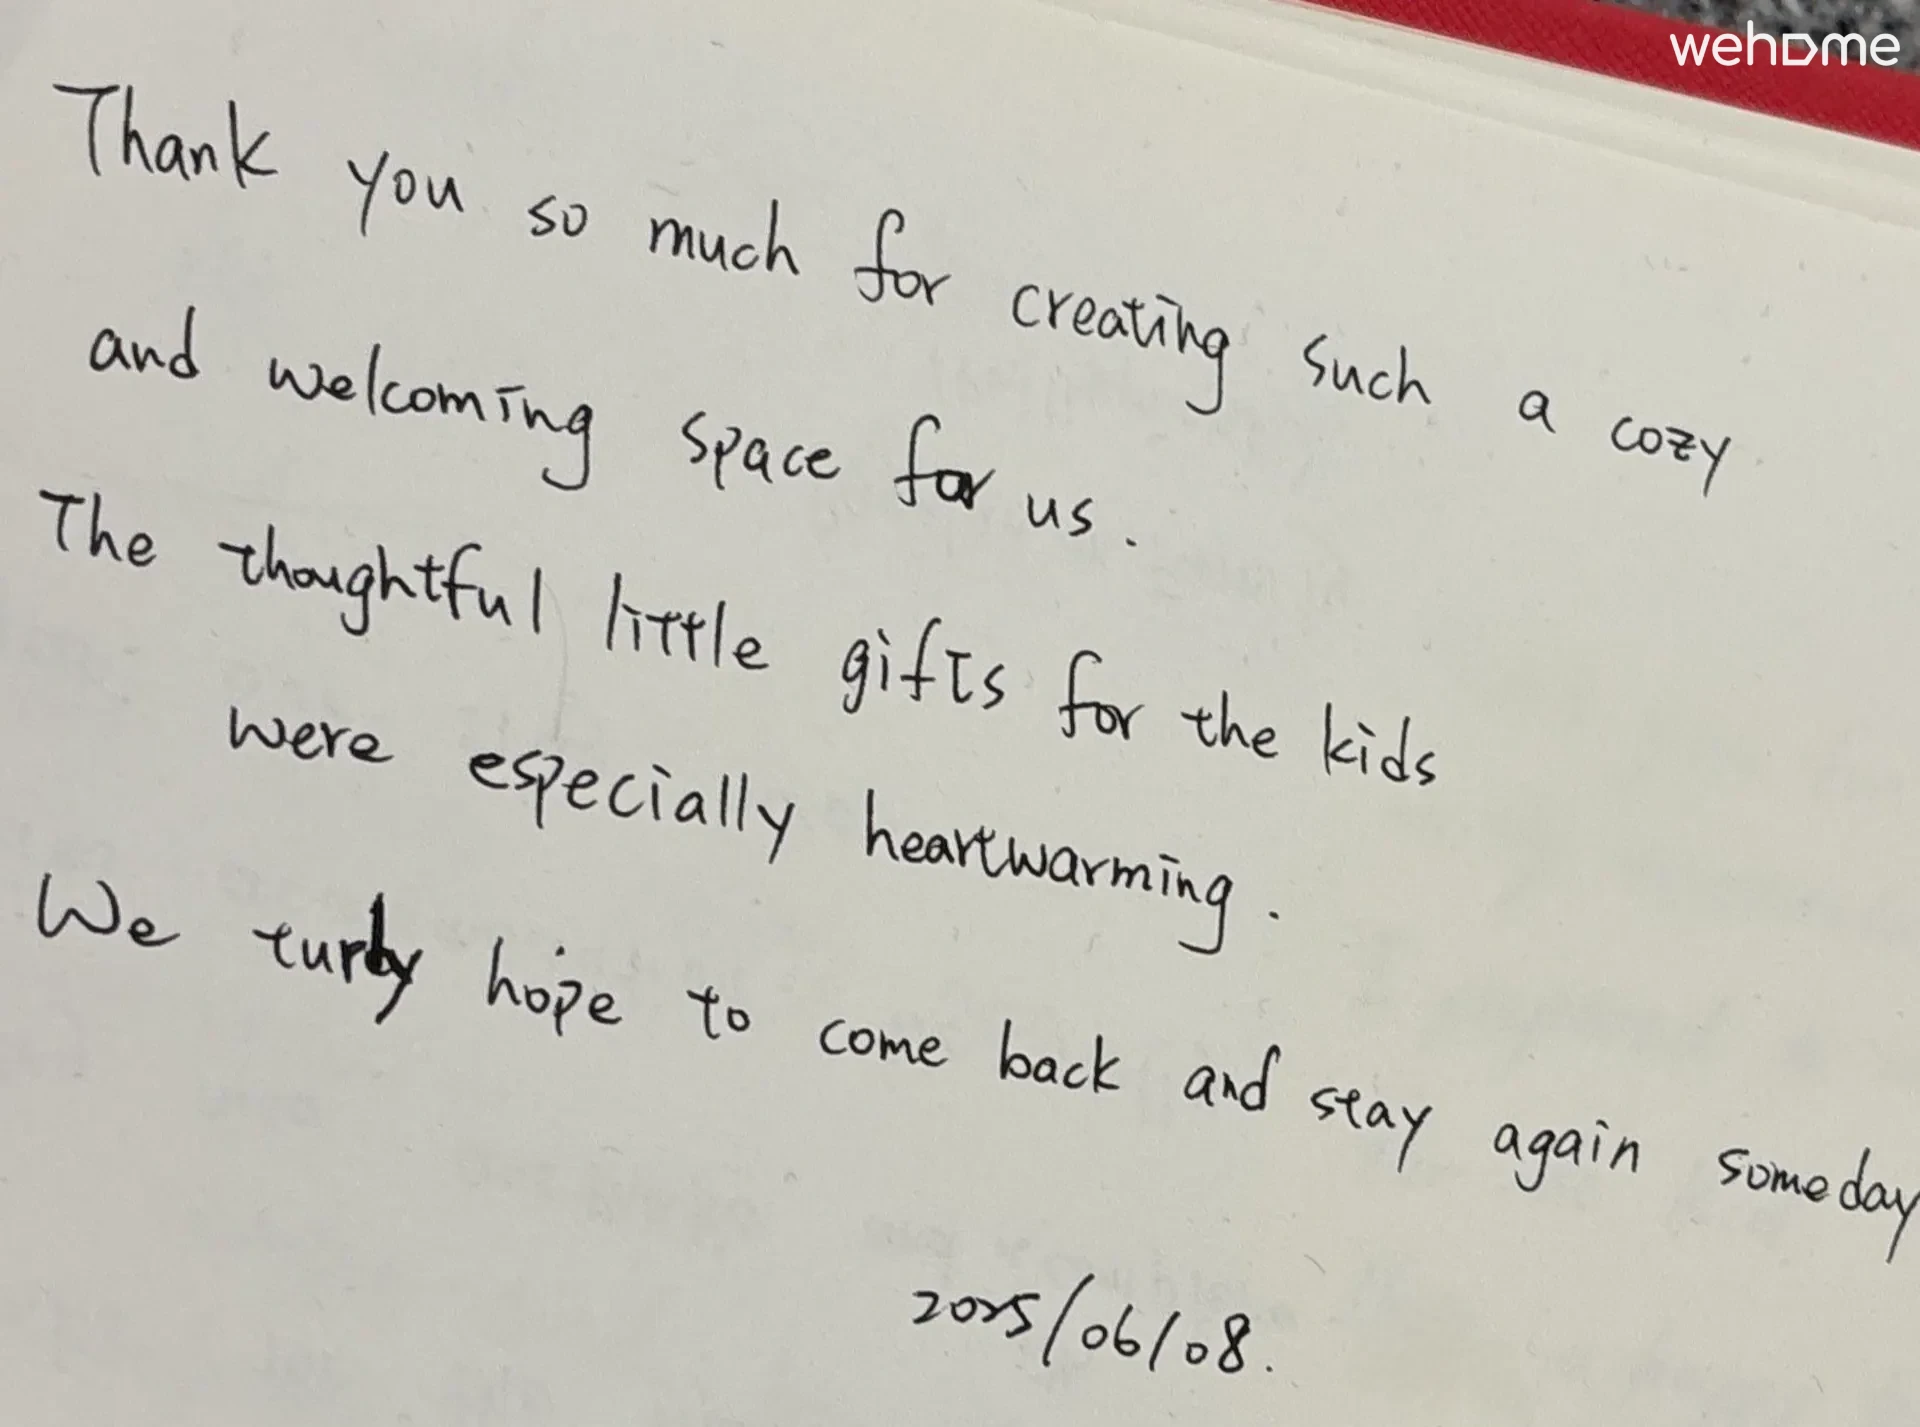 wehome
Thank you so much for creating such a cozy
and welcoming space for us.
The thoughtful little gifts for the kids
were especially heartwarming.
We turly hope to come back and stay again someday
2025/06/08.